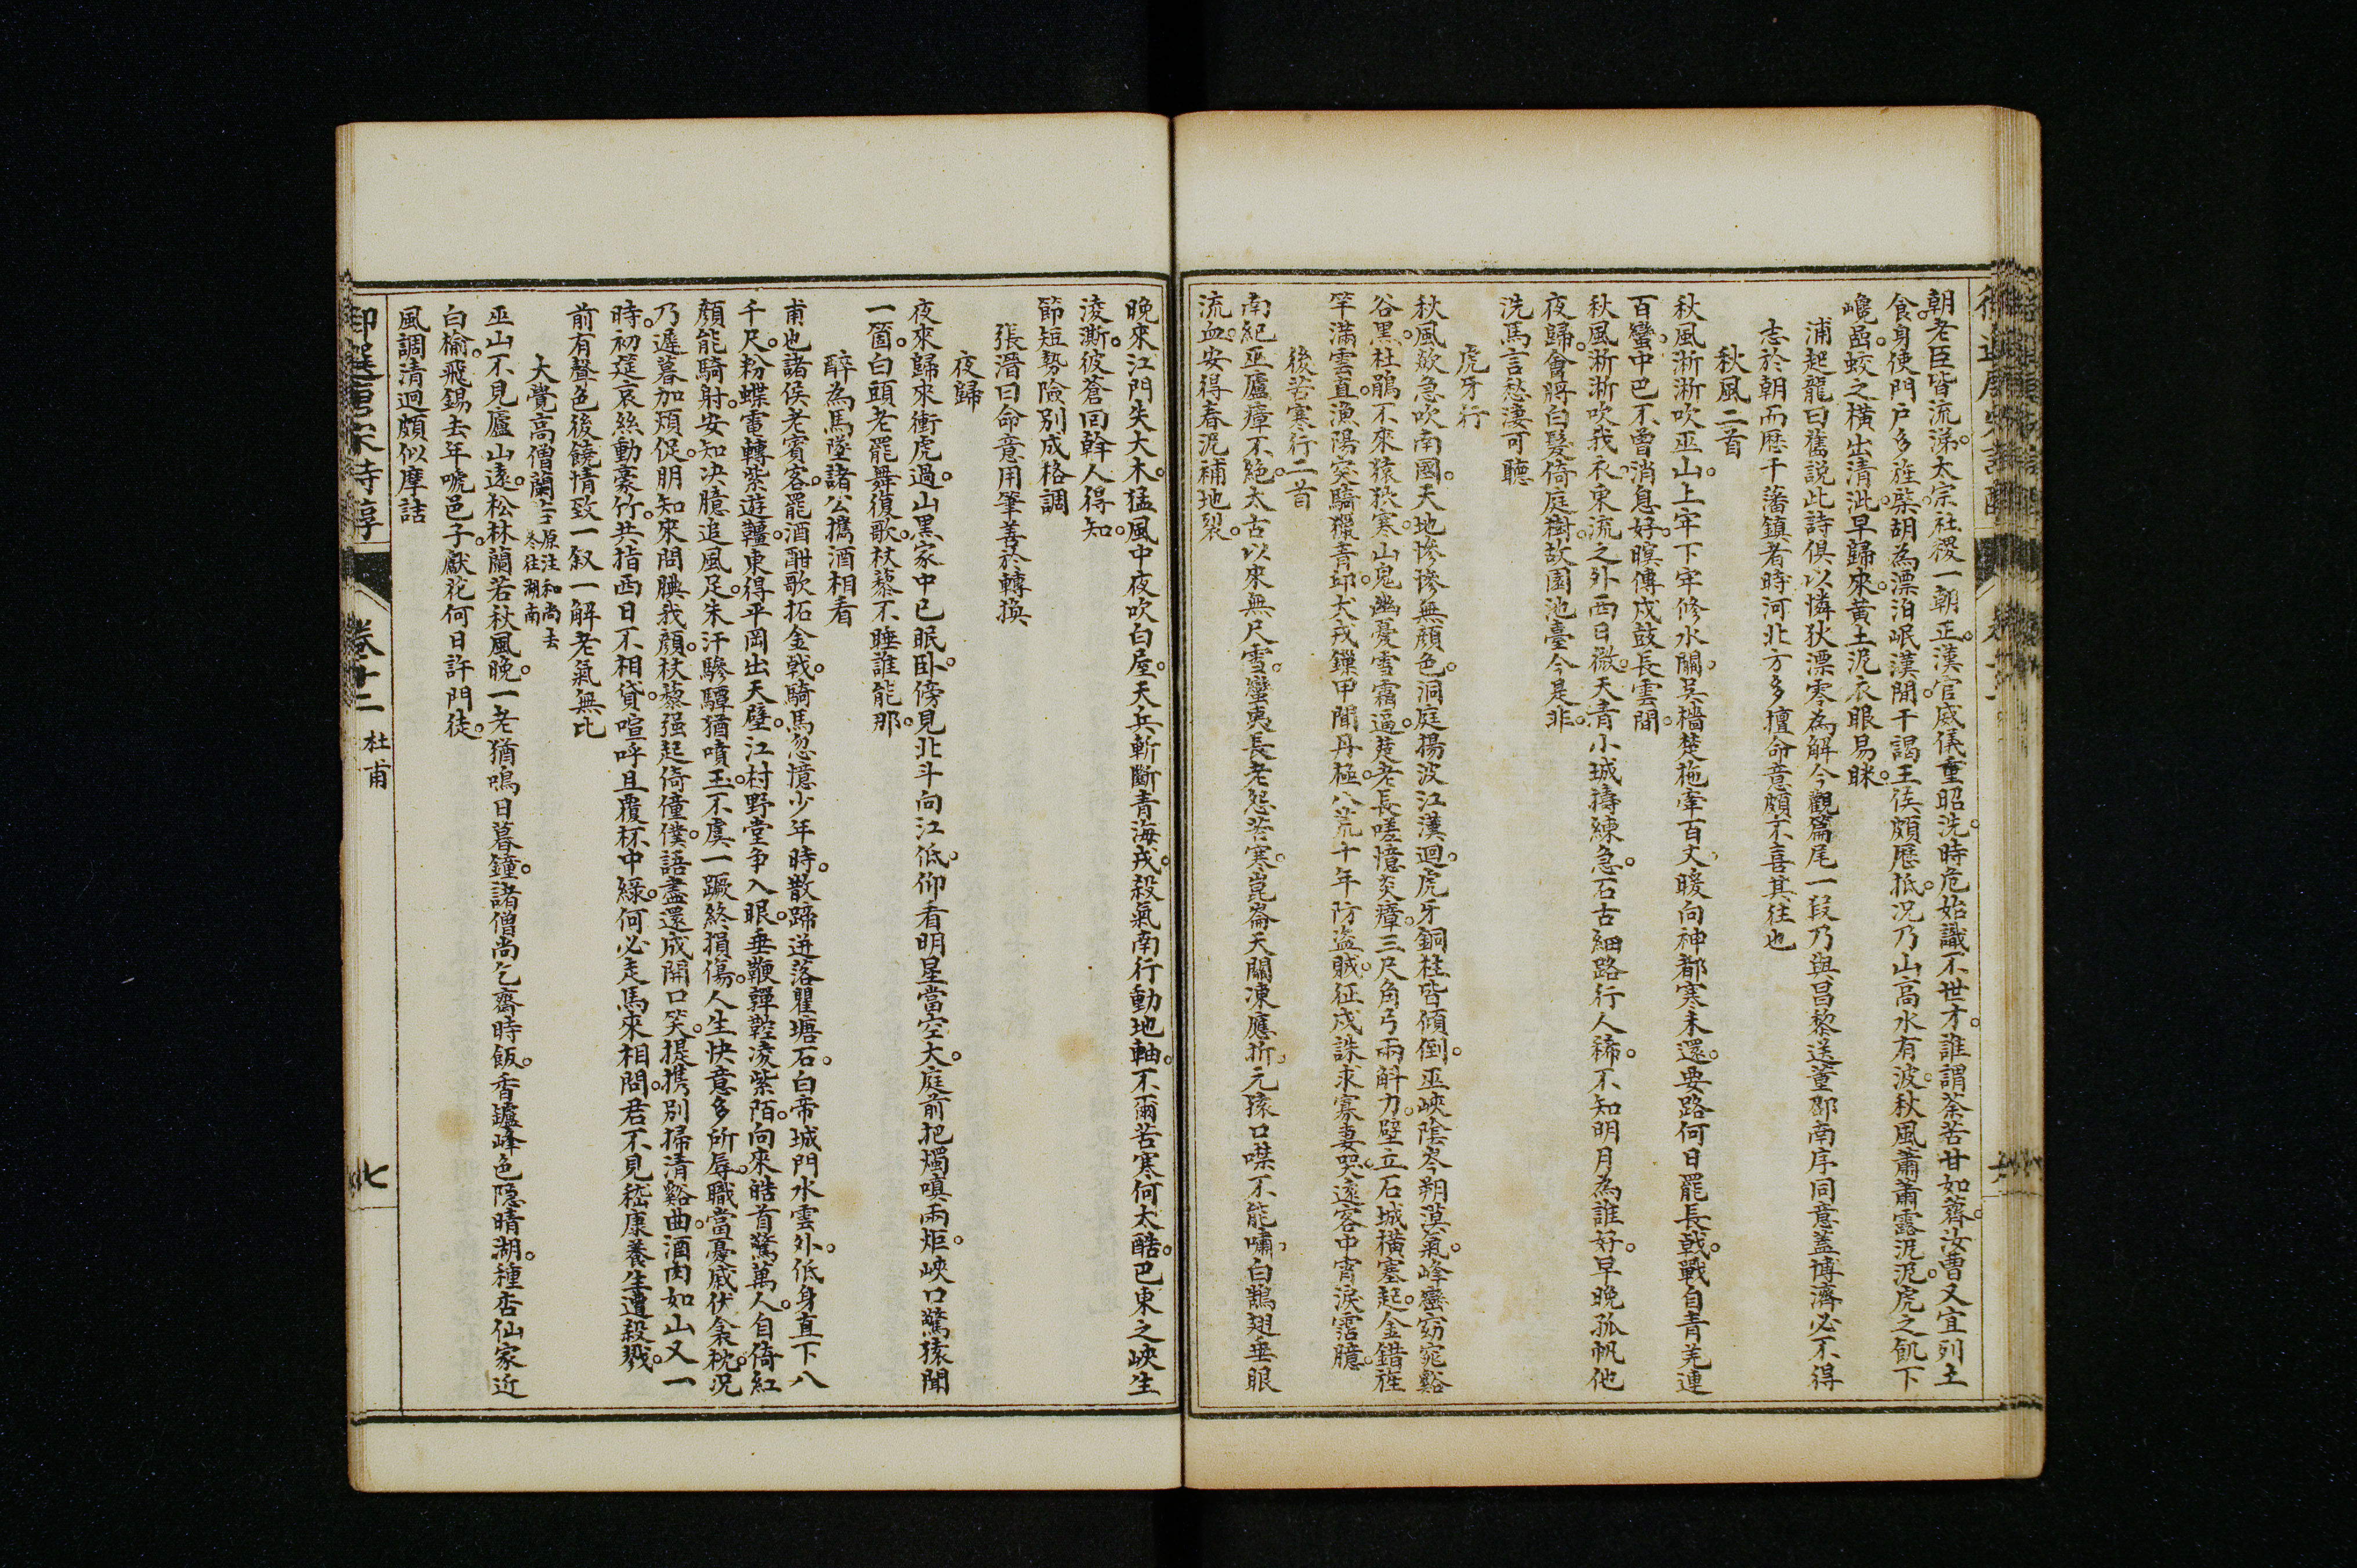 朝老臣皆流涕太宗社稷一朝正漢官威儀重昭洗時危始識不世才誰謂荼苦甘如薺汝曹又宜列土
食身使門戶多旌棨胡為漂泊岷漢間干謁王侯頗歷抵況乃山高水有波秋風蕭蕭露泥泥虎之飢下
巉嵒蛟之橫出清泚早歸來黃土泥衣眼易眯
浦起龍曰舊說此詩俱以憐狄漂零為解今觀篇尾一段乃與昌黎送董邵南序同意蓋博濟必不得
志於朝而歷干藩鎮者時河北方多擅命意頗不喜其往也
秋風二首
秋風淅淅吹巫山上牢下牢修水關吳檣楚柂牽百丈暖向神都寒未還要路何日罷長戟戰自青羌連
百蠻中巴不曾消息好暝傳戍鼓長雲間
秋風淅淅吹我衣東流之外西日微天青小城擣練急石古細路行人稀不知明月為誰好早晚孤帆他
夜歸會將白髮倚庭樹故園池臺今是非
洗馬言愁淒可聽
虎牙行
秋風欻急吹南國天地慘慘無顏色洞庭揚波江漢迴虎牙銅柱皆傾倒巫峽陰岑朔漠氣峰巒窈窕谿
谷黑杜鵑不來猿狖寒山鬼幽憂雪霜逼楚老長嗟憶炎瘴三尺角弓兩斛力壁立石城橫塞起金錯旌
竿滿雲直漁陽突騎獵青邱犬戎鏁甲聞丹極八荒十年防盜賊征戍誅求寡妻哭遠客中宵淚霑臆
後苦寒行二首
南紀巫廬瘴不絕太古以來無尺雪蠻夷長老怨苦寒崑崙天關凍應折元猿口噤不能嘯白鵠翅垂眼
流血安得春泥補地裂
晚來江門失大木猛風中夜吹白屋天兵斬斷青海戎殺氣南行動地軸不爾苦寒何太酷巴東之峽生
淩澌彼蒼回斡人得知
節短勢險別成格調
張溍曰命意用筆善於轉換
夜歸
夜來歸來衝虎過山黑家中已眠臥傍見北斗向江低仰看明星當空大庭前把燭嗔兩炬峽口驚猿聞
一箇白頭老罷舞復歌杖藜不睡誰能那
醉為馬墜諸公攜酒相看
甫也諸侯老賓客罷酒酣歌拓金戟騎馬忽憶少年時散蹄迸落瞿塘石白帝城門水雲外低身直下八
千尺粉蝶電轉紫遊韁東得平岡出天壁江村野堂爭入眼垂鞭嚲鞚凌紫陌向來皓首驚萬人自倚紅
顏能騎射安知決臆追風足朱汗驂驔猶噴玉不虞一蹶終損傷人生快意多所辱職當憂戚伏衾枕況
乃遲暮加煩促朋知來問腆我顏杖藜强起倚僮僕語盡還成開口笑提携別掃清谿曲酒肉如山又一
時初筵哀絲動豪竹共指西日不相貸喧呼且覆杯中綠何必走馬來相問君不見嵇康養生遭殺戮
前有聲色後饒情致一叙一解老氣無比
大覺高僧蘭若 原注和尚去冬往湖南
巫山不見廬山遠松林蘭若秋風晚一老猶鳴日暮鐘諸僧尚乞齋時飯香鑪峰色隱晴湖種杏仙家近
白榆飛錫去年唬邑子獻花何日許門徒
風調清迥頗似摩詰
御選唐宋詩醇
卷十二
杜甫
七